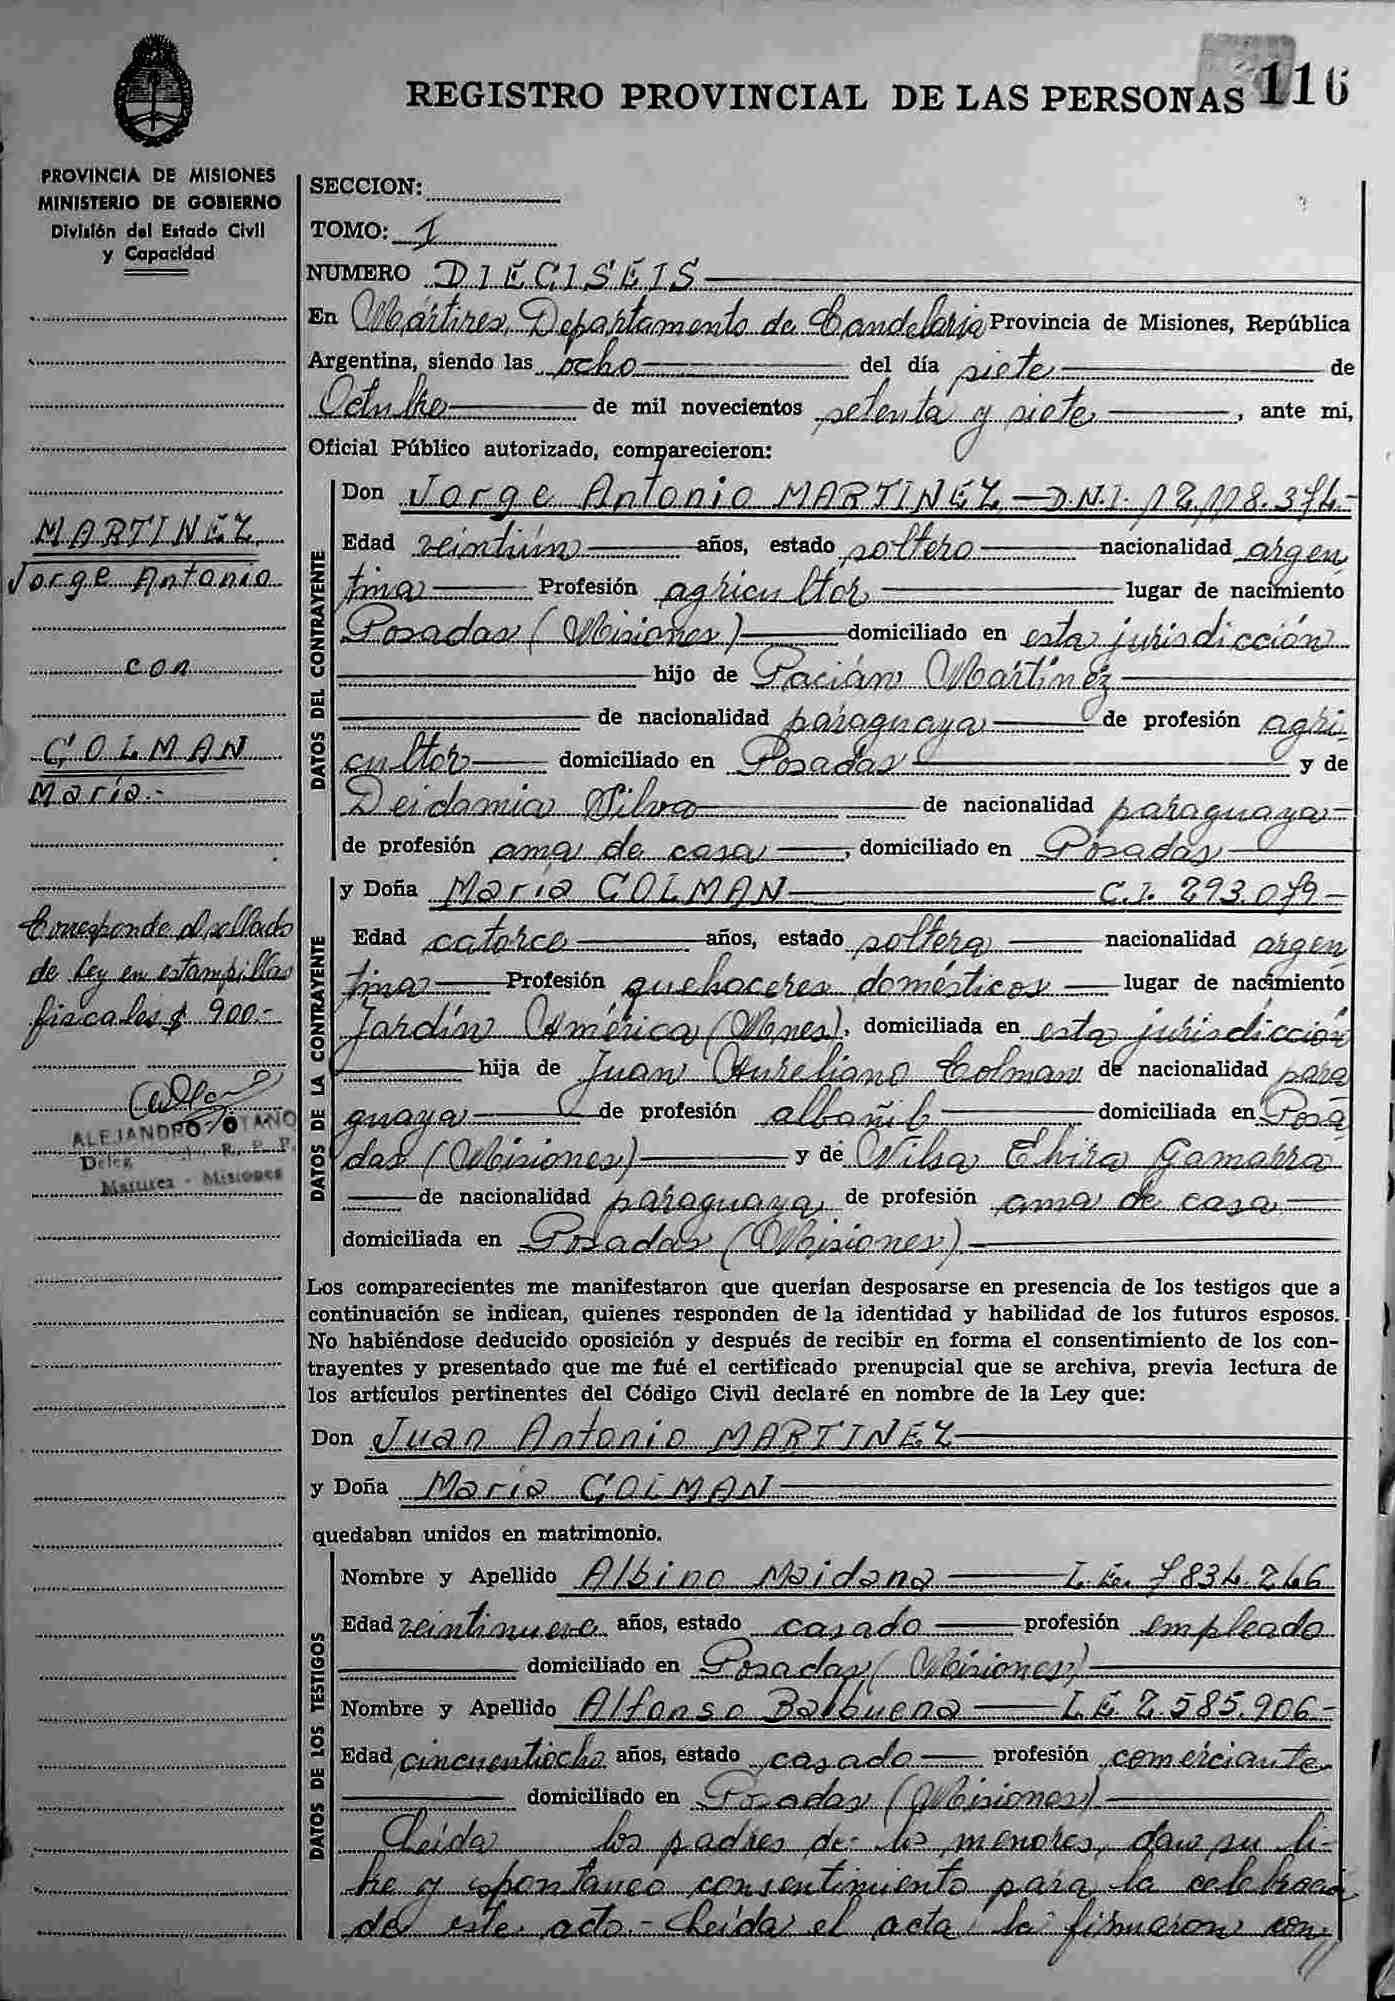 REGISTRO PROVINCIAL DE LAS PERSONAS 116
PROVINCIA DE MISIONES
MINISTERIO DE GOBIERNO
División del Estado Civil
y Capacidad
MARTINEZ
Jorge Antonio
con
COLMAN
María.-
Corresponde al sellado
de Ley en estampillas
fiscales $ 900.-
ALEJANDRO OTANO
Deleg R. P. P.
Martires - Misiones
SECCION:
TOMO: 1
NUMERO DIECISEIS
En Mártires, Departamento de Candelaria Provincia de Misiones, República
Argentina, siendo las ocho del día siete de
Octubre de mil novecientos setenta y siete, ante mi,
Oficial Público autorizado, comparecieron:
DATOS DEL CONTRAYENTE
Don Jorge Antonio MARTINEZ - D.N.I. 12.118.374-
Edad veintiún años, estado soltero nacionalidad argen
tina Profesión agricultor lugar de nacimiento
Posadas (Misiones) domiciliado en esta jurisdicción
hijo de Pacián Martínez
de nacionalidad paraguaya de profesión agri-
cultor domiciliado en Posadas y de
Deidamia Silva de nacionalidad paraguaya-
de profesión ama de casa, domiciliado en Posadas
DATOS DE LA CONTRAYENTE
y Doña María COLMAN C.I. 293.079-
Edad catorce años, estado soltera nacionalidad argen
tina Profesión quehaceres domésticos lugar de nacimiento
Jardín América (Mnes), domiciliada en esta jurisdicción
hija de Juan Aureliano Colman de nacionalidad para
guaya de profesión albañil domiciliada en Posa
das (Misiones) y de Nilsa Elvira Gamarra
de nacionalidad paraguaya, de profesión ama de casa
domiciliada en Posadas (Misiones)
Los comparecientes me manifestaron que querían desposarse en presencia de los testigos que a
continuación se indican, quienes responden de la identidad y habilidad de los futuros esposos.
No habiéndose deducido oposición y después de recibir en forma el consentimiento de los con-
trayentes y presentado que me fué el certificado prenupcial que se archiva, previa lectura de
los artículos pertinentes del Código Civil declaré en nombre de la Ley que:
Don Juan Antonio MARTINEZ
y Doña María COLMAN
quedaban unidos en matrimonio.
DATOS DE LOS TESTIGOS
Nombre y Apellido Albino Maidana L.E. 7834.266
Edad veintinueve años, estado casado profesión empleado
domiciliado en Posadas (Misiones)
Nombre y Apellido Alfonso Balbuena L.E 2.585.906-
Edad cincuentiocho años, estado casado profesión comerciante
domiciliado en Posadas (Misiones)
Leída los padres de los menores, dan su li-
bre y espontáneo consentimiento para la celebración
de este acto.- Leída el acta, la firmaron con